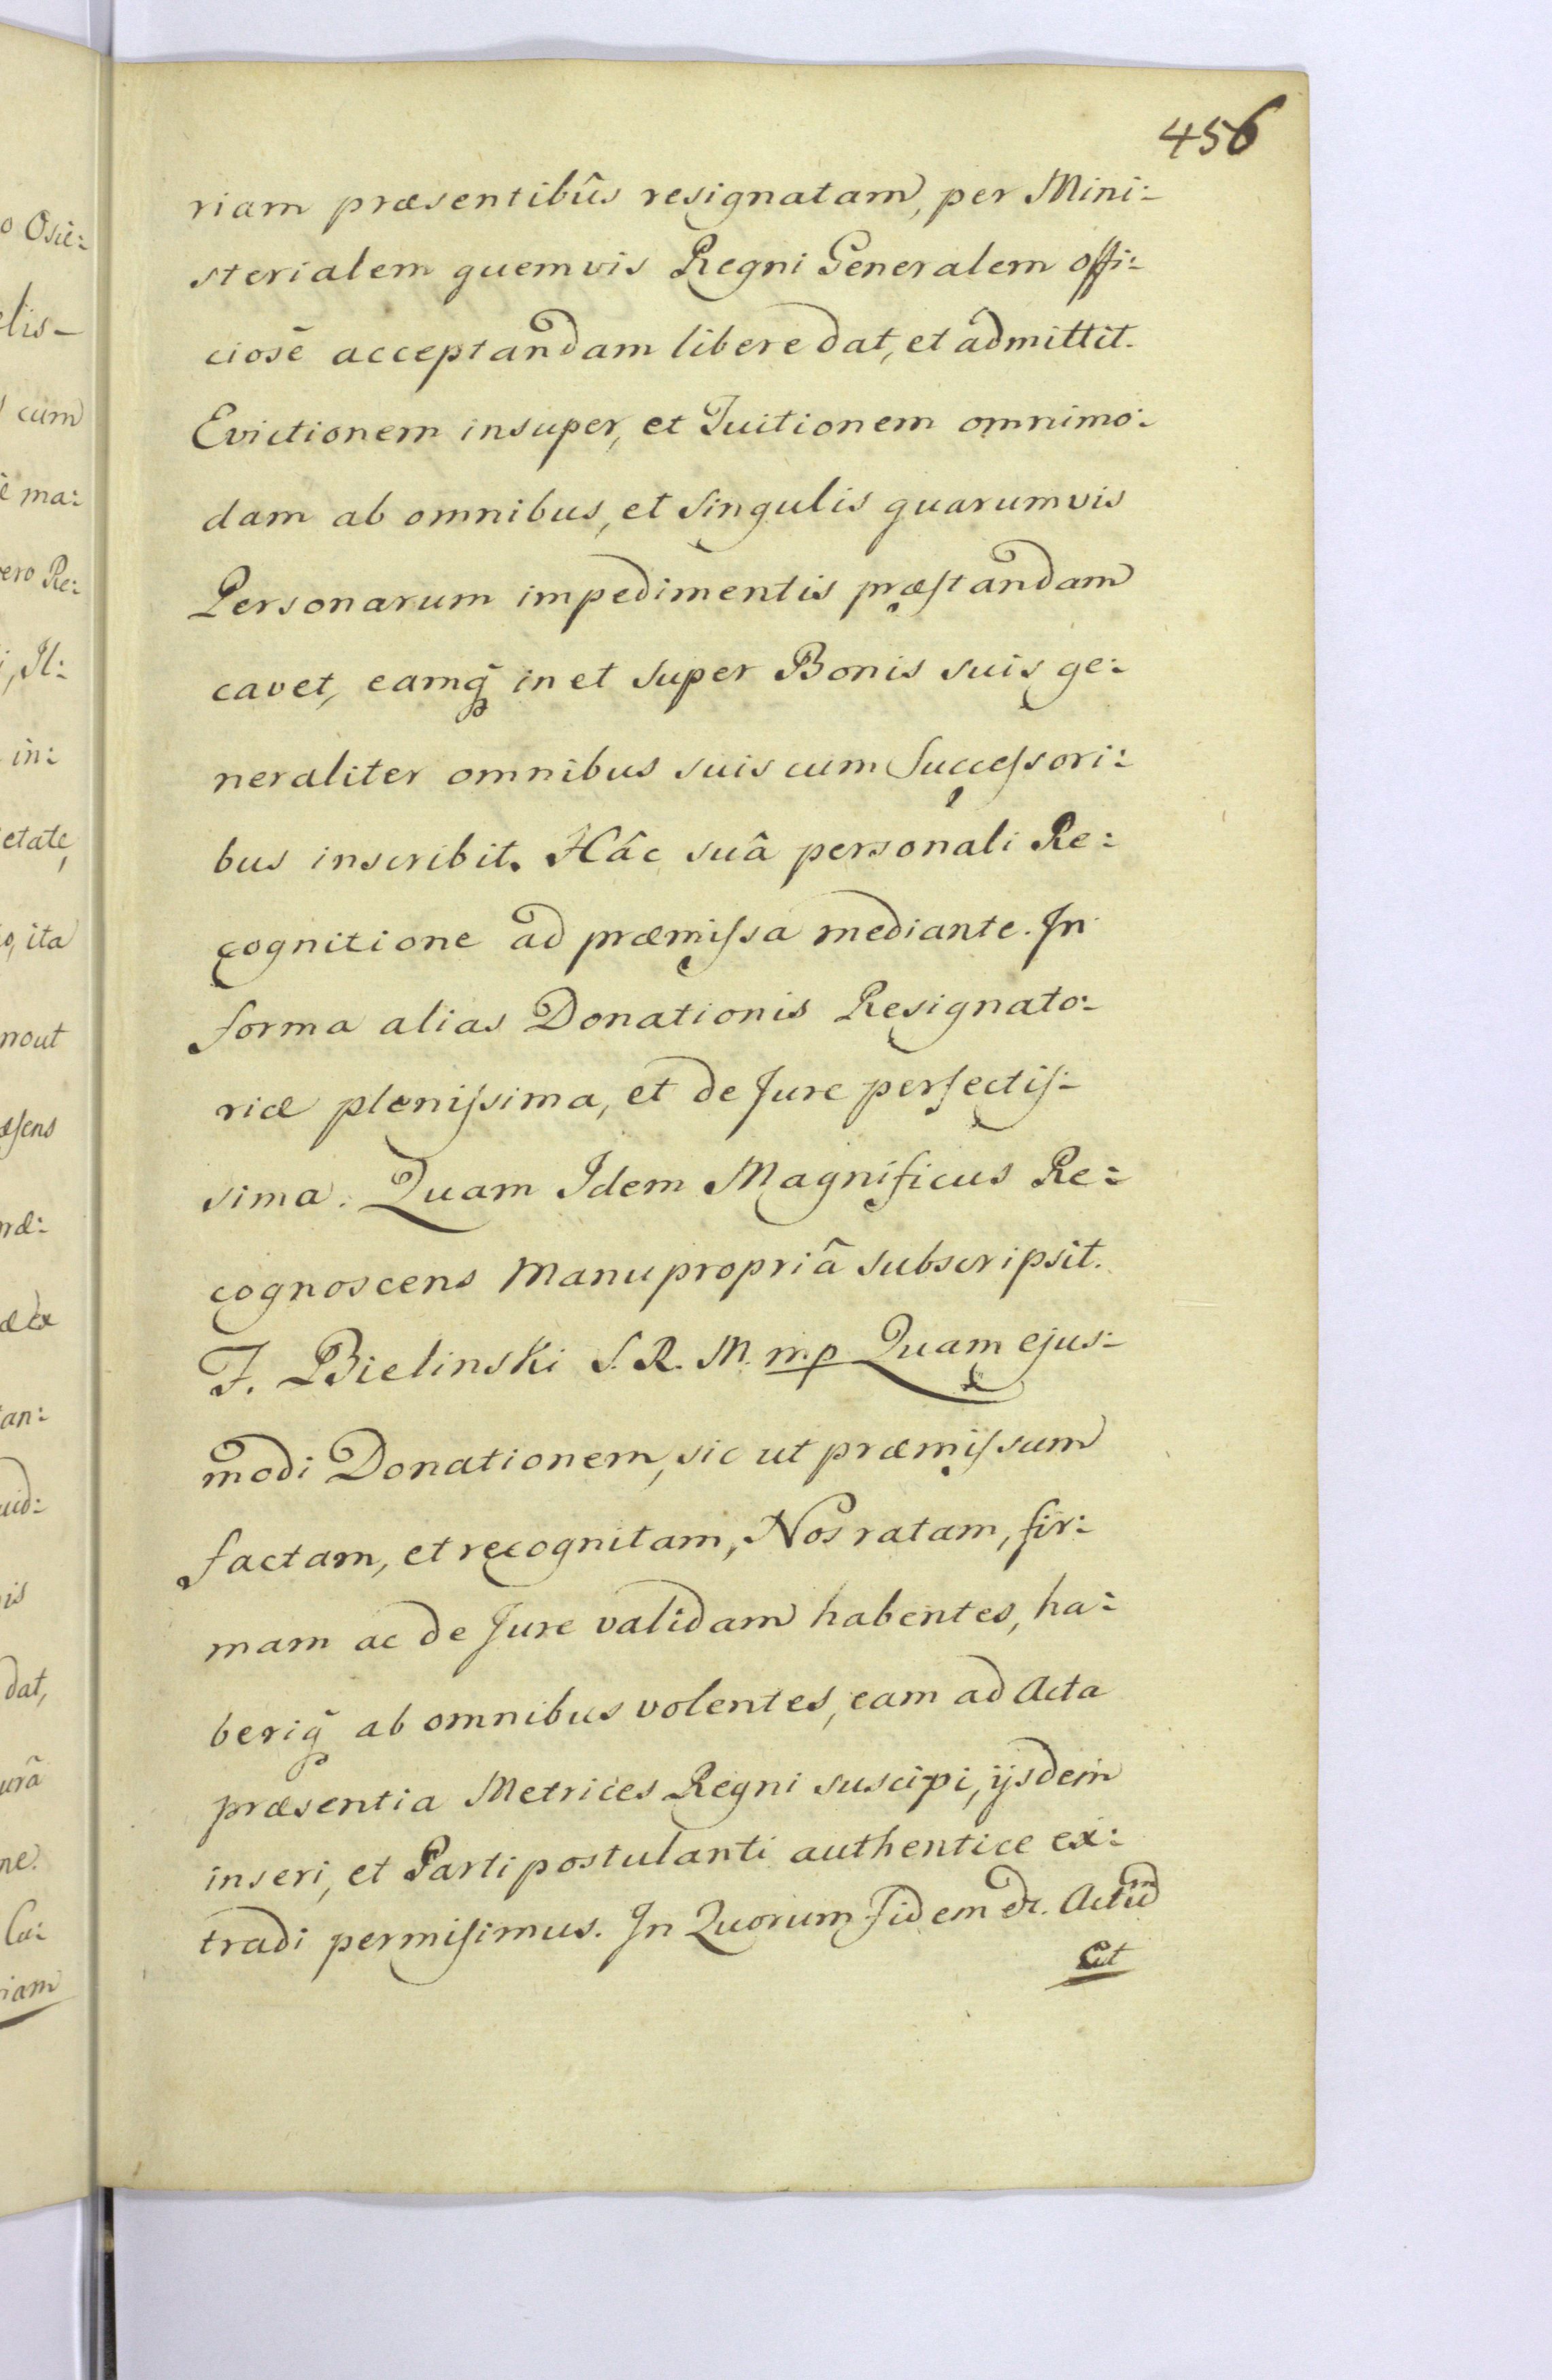 456
riam præsentibûs resignatam, per Mini:
sterialem quemvis Regni Generalem offi:
ciosē acceptandam libere dat, et admittit.
Evictionem insuper, et Tuitionem omnimo:
dam ab omnibus, et singulis quarumvis
Personarum impedimentis præstandam
cavet, eamq̃ in et super Bonis suis ge:
neraliter omnibus suis cum Successori:
bus inscribit. Hâc suâ personali Re:
cognitione ad præmissa mediante. In
forma alias Donationis Resignato:
riæ plenissima, et de Jure perfectis:
sima. Quam Idem Magnificus Re:
cognoscens Manu propriâ subscripsit.
F. Bielinski S. R. M. mp Quam ejus:
modi Donationem, sic ut præmissum
factam, et recognitam, Nos ratam, fir:
mam ac de Jure validam habentes, ha:
beriq̃ ab omnibus volentes, eam ad Acta
præsentia Metrices Regni suscipi, ijsdem
inseri, et Parti postulanti authentice ex:
tradi permisimus. In Quorum Fidem &c. Actū
Ut
o Osie:
elis-
cum
ma:
vero Re:
i, Il:
in:
etate,
o, ita
nout
æsens
ræ:
tan:
uid:
is
dat,
urâ
ne.
Ca:
riam